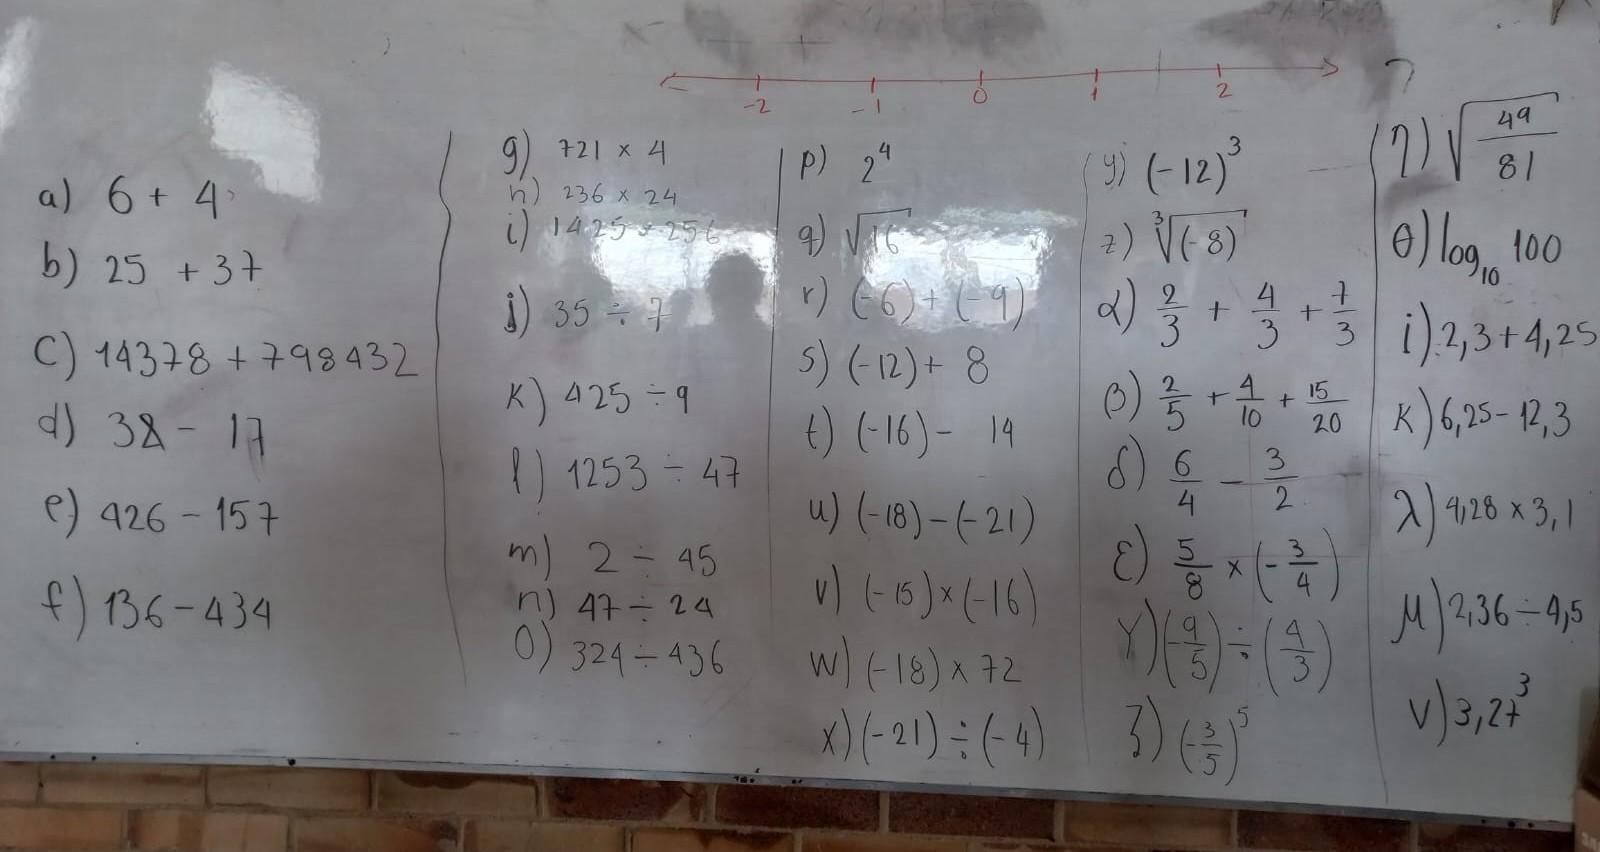 -2 -1 0 1 2
a) 6 + 4
b) 25 + 37
c) 14378 + 798432
d) 38 - 17
e) 426 - 157
f) 136 - 434
g) 721 × 4
h) 236 × 24
i) 1425 × 256
j) 35 ÷ 7
k) 425 ÷ 9
l) 1253 ÷ 47
m) 2 ÷ 45
n) 47 ÷ 24
o) 324 ÷ 436
p) 2⁴
q) √16
r) (-6) + (-9)
s) (-12) + 8
t) (-16) - 14
u) (-18) - (-21)
v) (-15) × (-16)
w) (-18) × 72
x) (-21) ÷ (-4)
y) (-12)³
z) ³√(-8)
α) 2/3 + 4/3 + 7/3
β) 2/5 + 4/10 + 15/20
δ) 6/4 - 3/2
ε) 5/8 × (-3/4)
γ) (-9/5) ÷ (4/3)
ζ) (-3/5)⁵
η) √(49/81)
θ) log₁₀ 100
i) 2,3 + 4,25
κ) 6,25 - 12,3
λ) 4,28 × 3,1
μ) 2,36 ÷ 4,5
ν) 3,27³